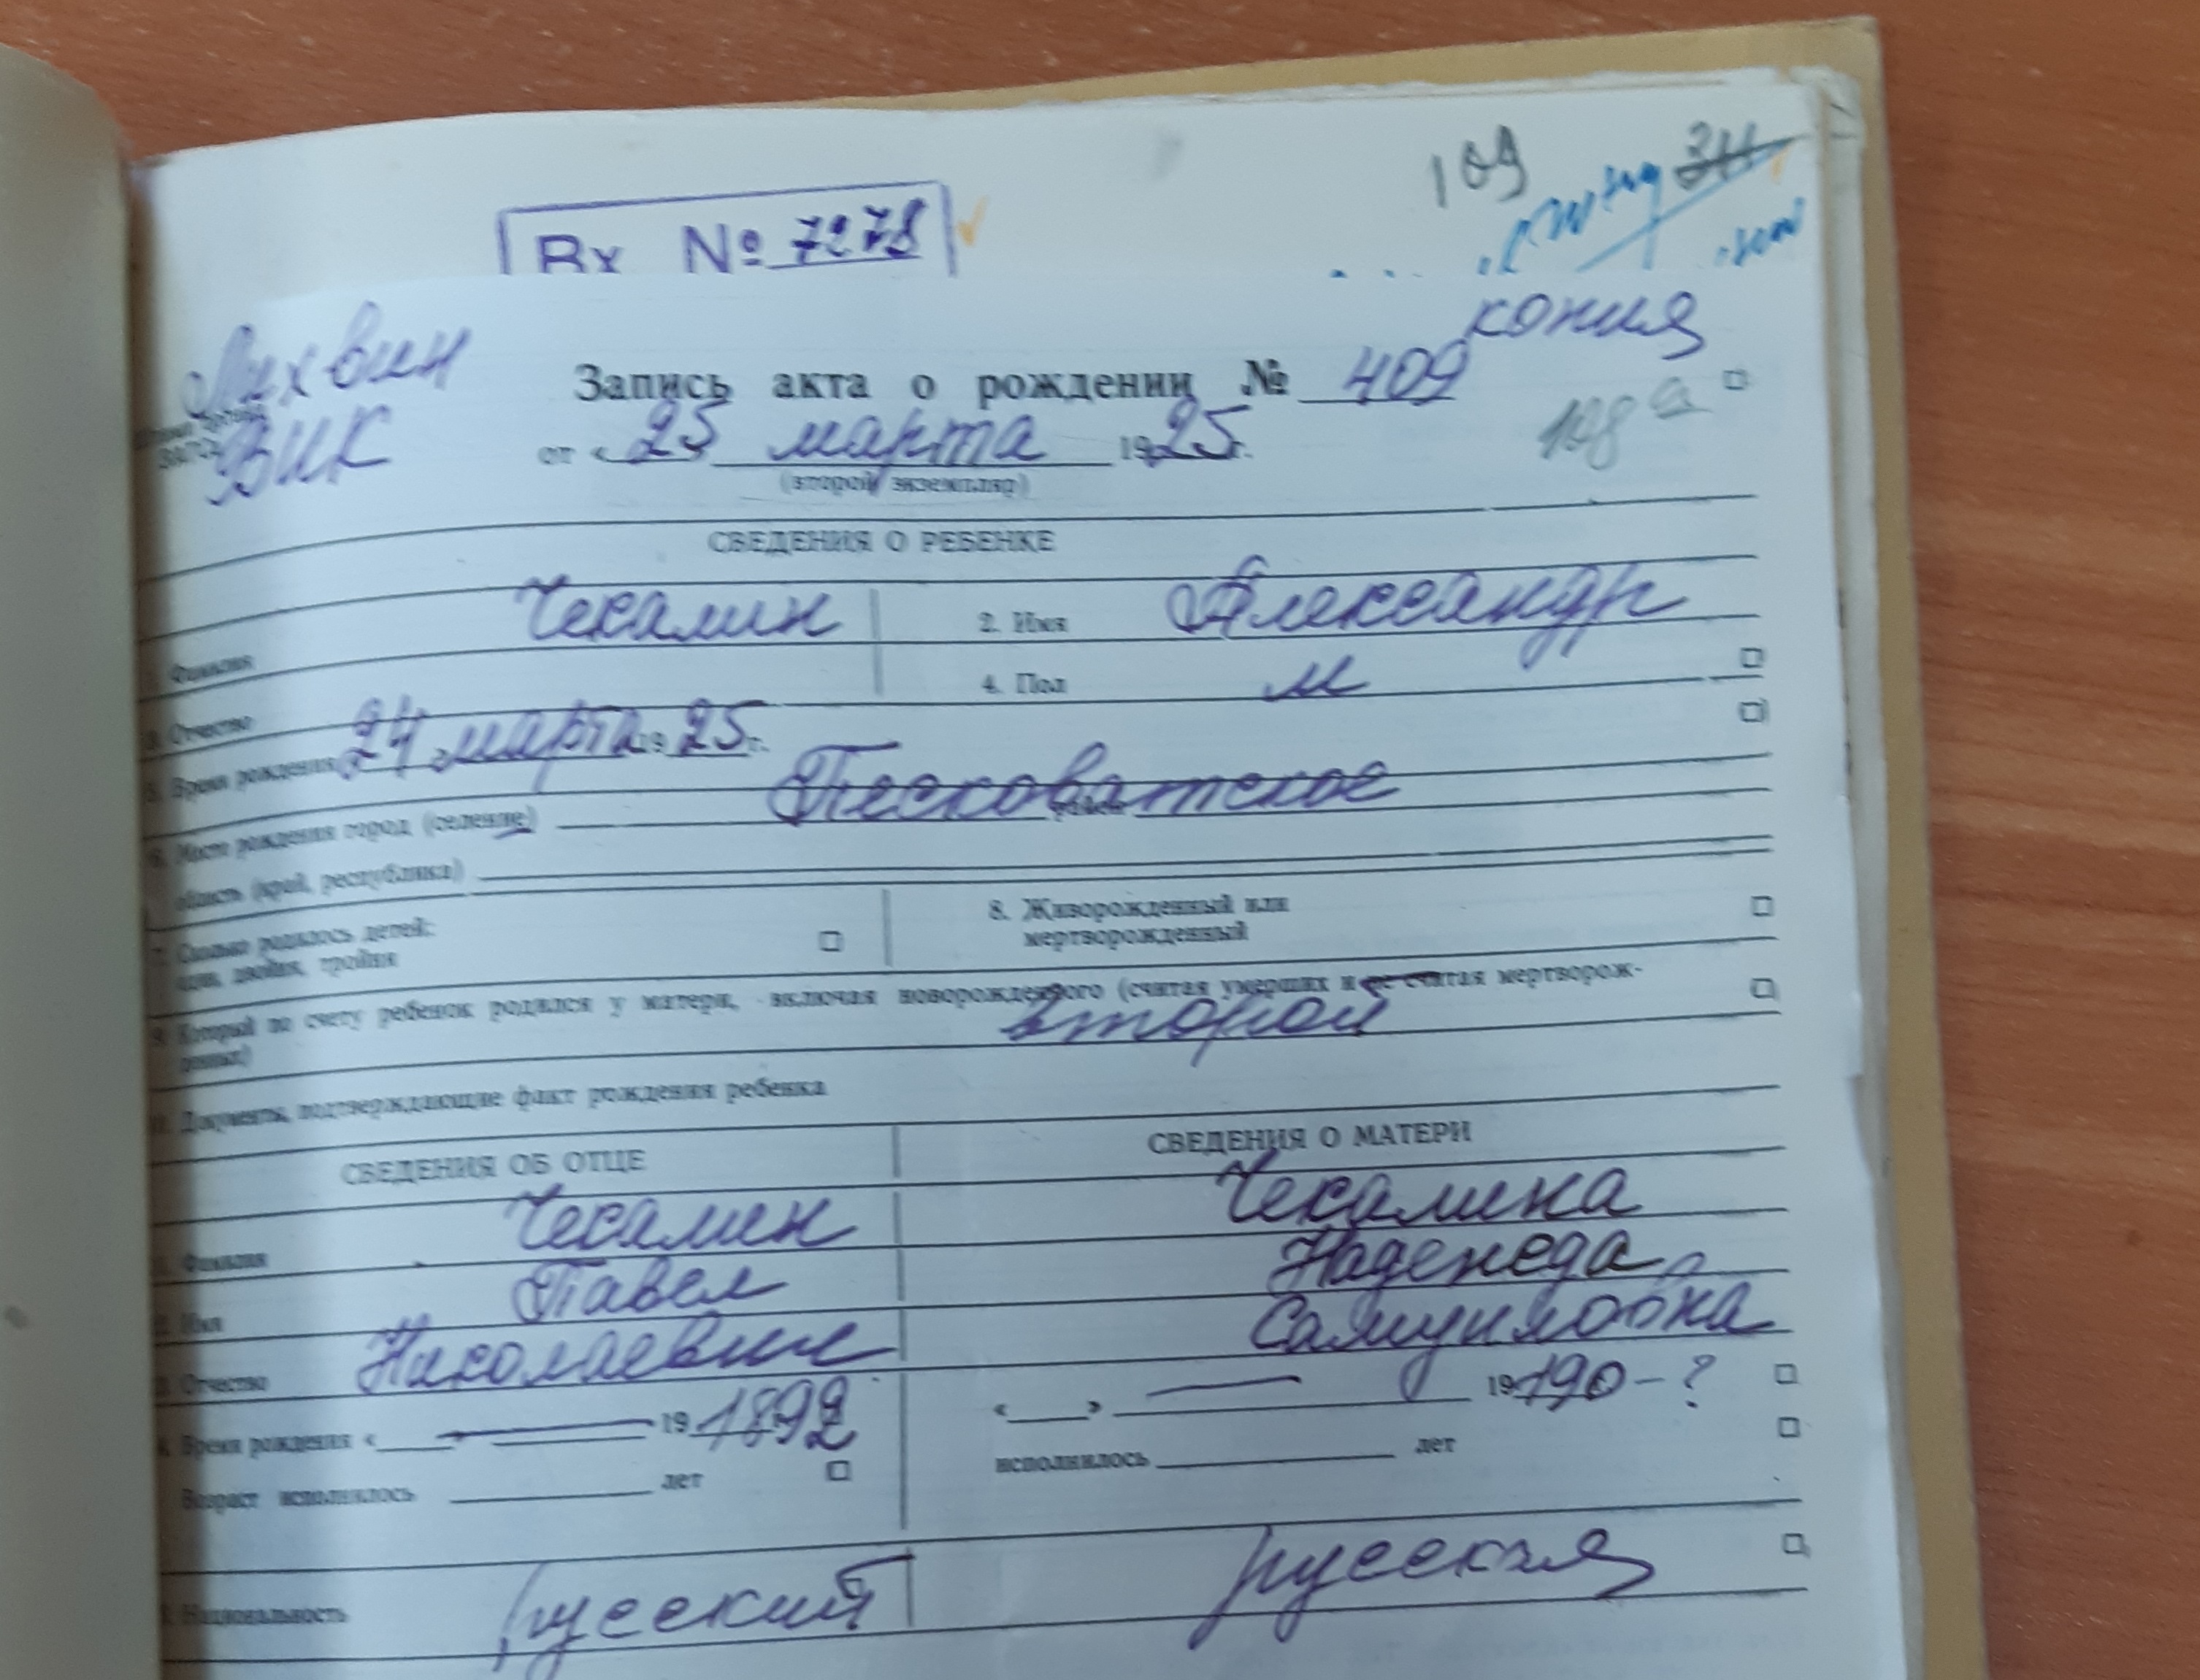 109 311
Вх № 7278
копия
Лихвин
ВИК
Запись акта о рождении № 409
108 а
от « 25 марта 1925 г.
(второй экземпляр)
СВЕДЕНИЯ О РЕБЕНКЕ
Фамилия Чекалин 2. Имя Александр
3. Отчество 4. Пол м
5. Время рождения 24 марта 19 25 г.
6. Место рождения город (селение) Песковатское
область (край, республика)
7. Сколько родилось детей: 8. Живорожденный или
один, двойня, тройня мертворожденный
9. Который по счету ребенок родился у матери, включая новорожденного (считая умерших и не считая мертворож-
денных) второй
10. Документы, подтверждающие факт рождения ребенка
СВЕДЕНИЯ ОБ ОТЦЕ СВЕДЕНИЯ О МАТЕРИ
1. Фамилия Чекалин Чекалина
2. Имя Павел Надежда
3. Отчество Николаевич Самуиловна
4. Время рождения «___» 19 1892 «___» 19 190-?
Возраст исполнилось лет исполнилось лет
Национальность русский русская